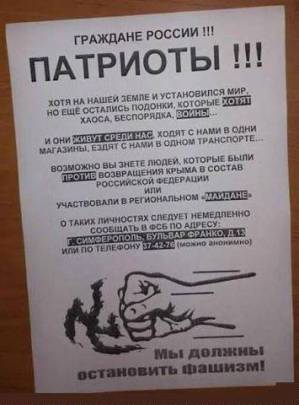 ГРАЖДАНЕ РОССИИ !!!
ПАТРИОТЫ !!!
ХОТЯ НА НАШЕЙ ЗЕМЛЕ И УСТАНОВИЛСЯ МИР,
НО ЕЩЁ ОСТАЛИСЬ ПОДОНКИ, КОТОРЫЕ ХОТЯТ
ХАОСА, БЕСПОРЯДКА, ВОЙНЫ...
И ОНИ ЖИВУТ СРЕДИ НАС, ХОДЯТ С НАМИ В ОДНИ
МАГАЗИНЫ, ЕЗДЯТ С НАМИ В ОДНОМ ТРАНСПОРТЕ...
ВОЗМОЖНО ВЫ ЗНАЕТЕ ЛЮДЕЙ, КОТОРЫЕ БЫЛИ
ПРОТИВ ВОЗВРАЩЕНИЯ КРЫМА В СОСТАВ
РОССИЙСКОЙ ФЕДЕРАЦИИ
ИЛИ
УЧАСТВОВАЛИ В РЕГИОНАЛЬНОМ «МАЙДАНЕ»
О ТАКИХ ЛИЧНОСТЯХ СЛЕДУЕТ НЕМЕДЛЕННО
СООБЩАТЬ В ФСБ ПО АДРЕСУ:
Г. СИМФЕРОПОЛЬ, БУЛЬВАР ФРАНКО, Д.13
ИЛИ ПО ТЕЛЕФОНУ 37-42-76 (можно анонимно)
Мы должны
остановить фашизм!